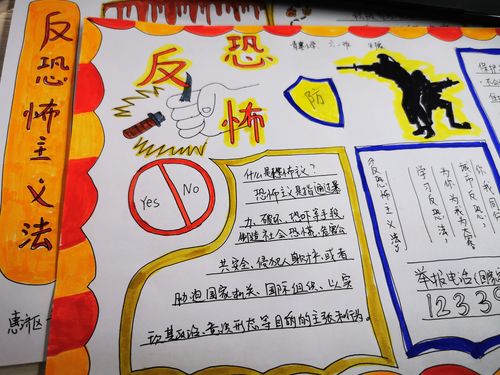 反恐怖主义法
惠济区
反恐怖
防
Yes No
什么是恐怖主义？
恐怖主义是指通过暴
力、破坏、恐吓等手段，
制造社会恐慌、危害公
共安全、侵犯人身财产，或者
胁迫国家机关、国际组织，以实
现其政治、意识形态等目的的主张和行为。
《反恐怖主义法》
学习反恐法，
为你为我为大家。
举报电话
1233
保护